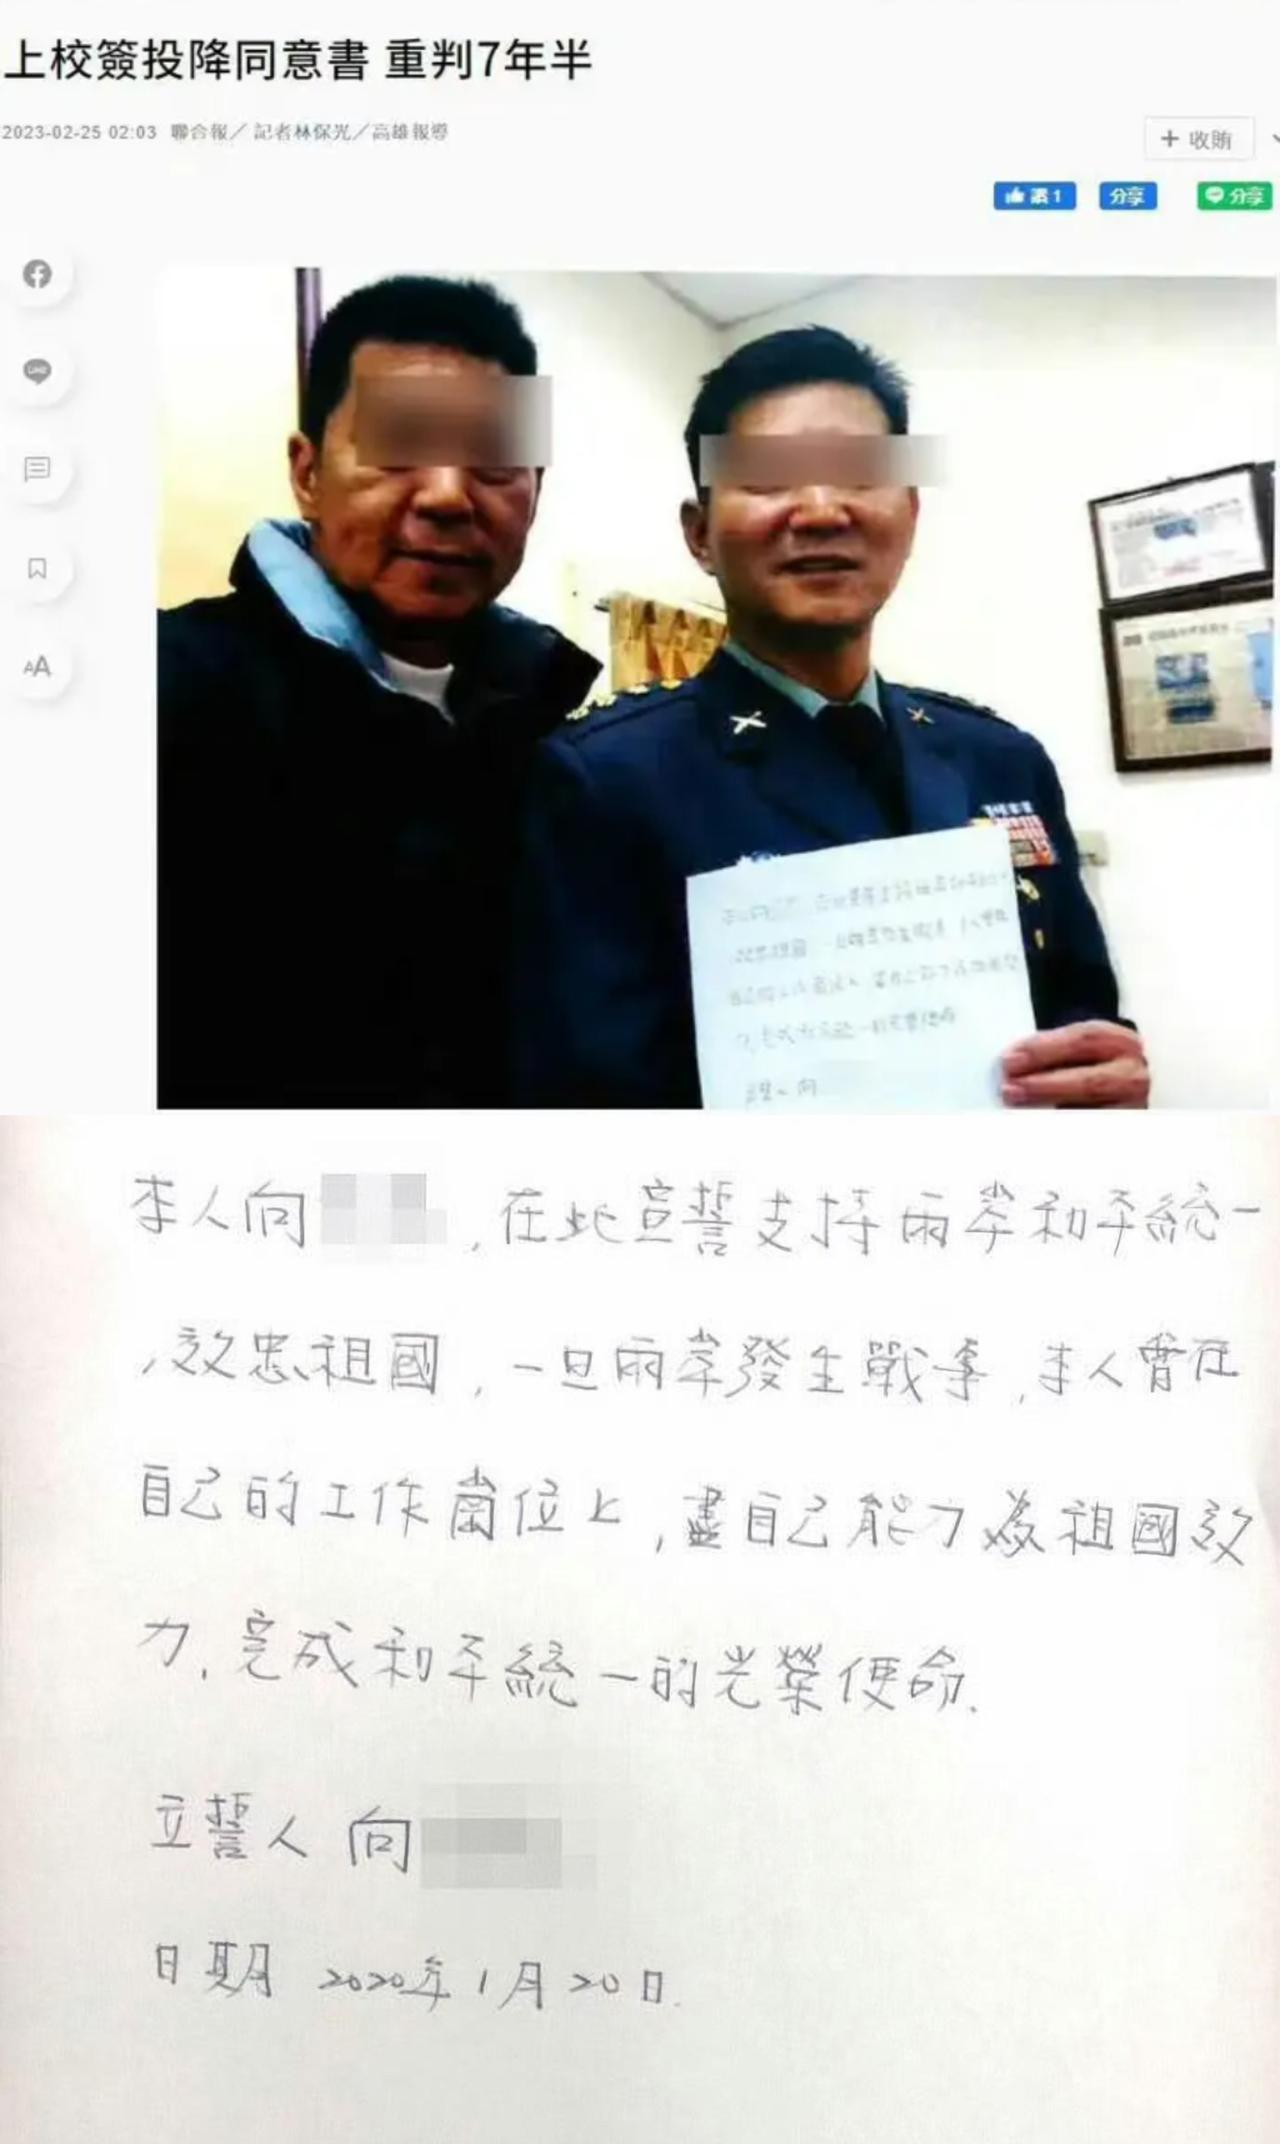 上校簽投降同意書 重判7年半
2023-02-25 02:03 聯合報／記者林保光／高雄報導
+ 收賄
讚 1
分享
分享
LINE
AA
本人向
,在此宣誓支持兩岸和平統一
,效忠祖國,一旦兩岸發生戰事,本人會在
自己的工作崗位上,盡自己能力為祖國效
力,完成和平統一的光榮使命.
立誓人 向
日期 2020年1月20日.